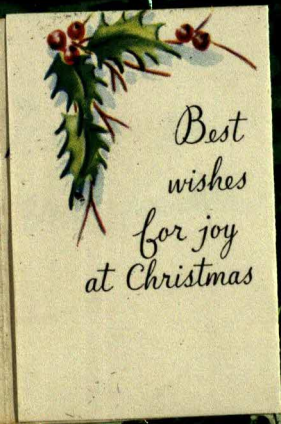 Best
wishes
for joy
at Christmas